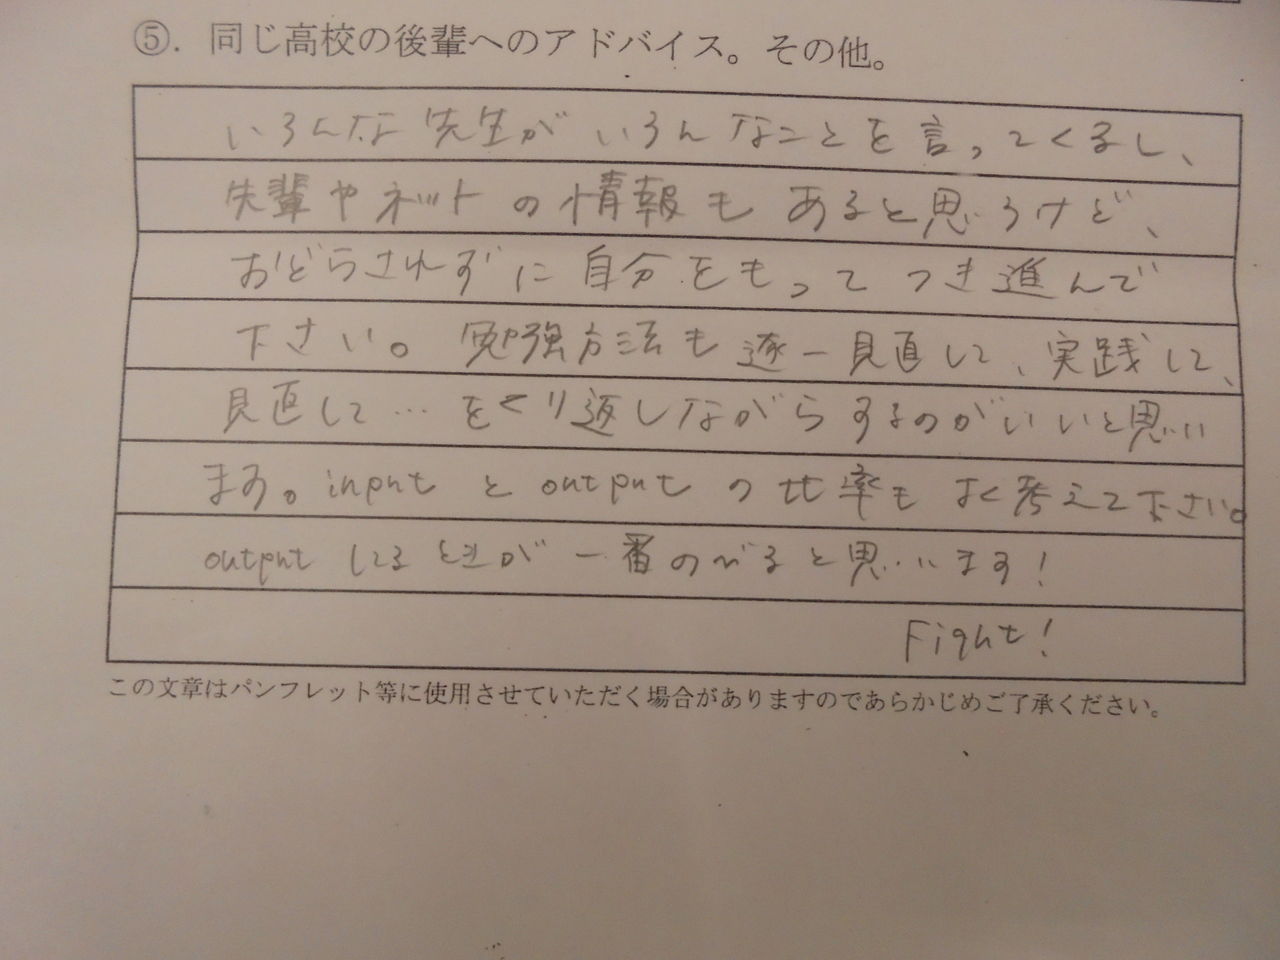 ⑤. 同じ高校の後輩へのアドバイス。その他。
いろんな先生がいろんなことを言ってくるし、
先輩やネットの情報もあると思うけど、
おどらされずに自分をもってつき進んで
下さい。勉強方法も逐一見直して、実践して、
見直して…をくり返しながらするのがいいと思い
ます。inputとoutputの比率もよく考えて下さい。
outputしてるときが一番のびると思います!
Fight!
この文章はパンフレット等に使用させていただく場合がありますのであらかじめご了承ください。